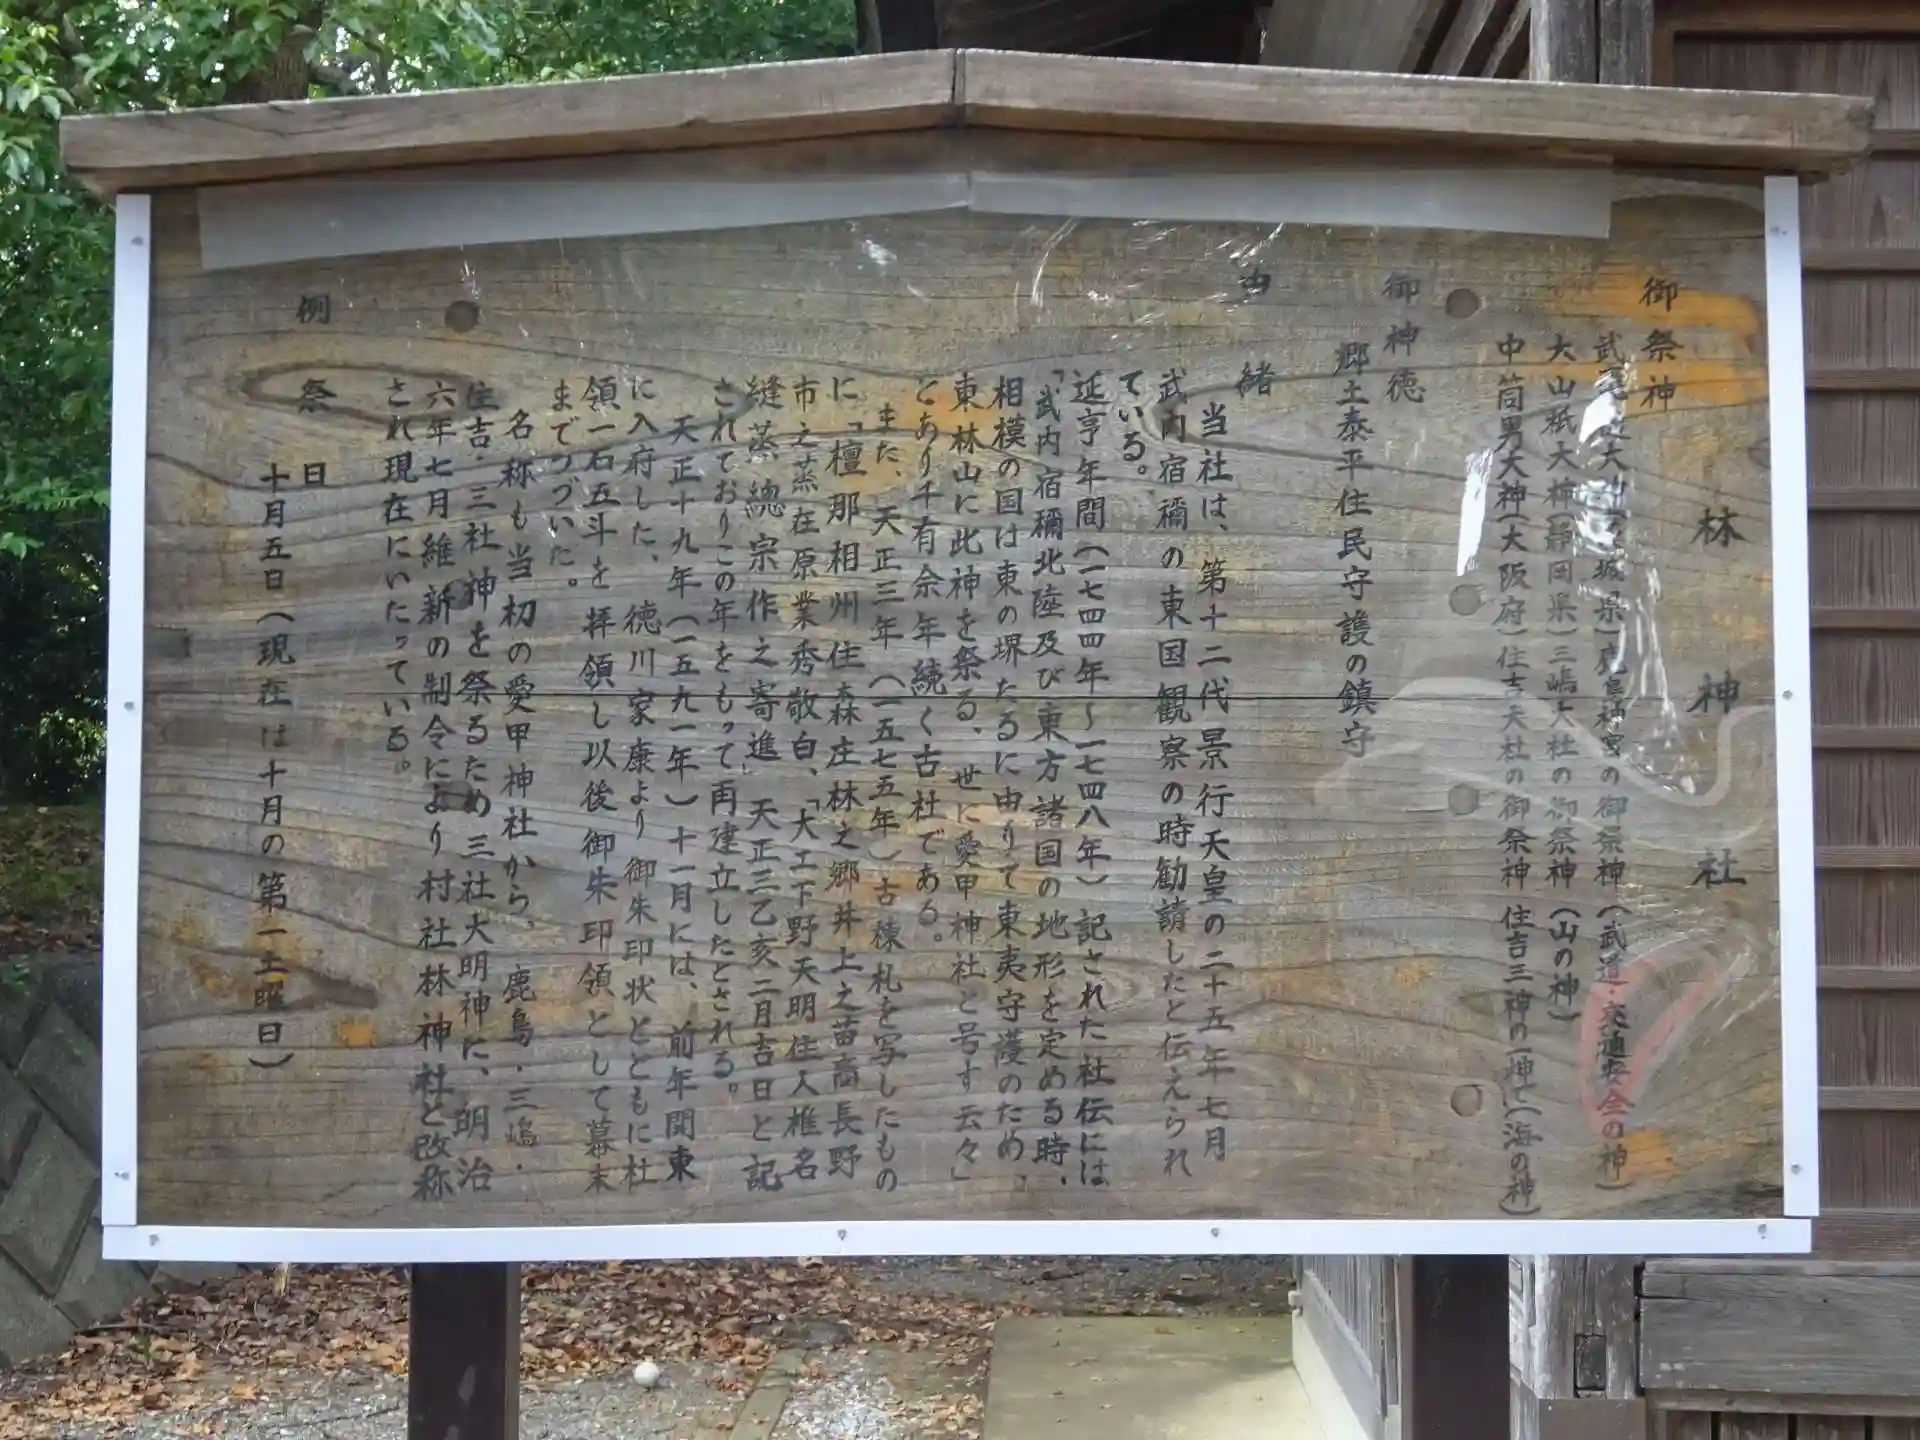 林神社
御祭神
武甕槌大神(茨城県)鹿島神宮の御祭神(武道・交通安全の神)
大山祇大神(静岡県)三嶋大社の御祭神(山の神)
中筒男大神(大阪府)住吉大社の御祭神 住吉三神の一神で(海の神)
御神徳
郷土泰平住民守護の鎮守
由緒
当社は、第十二代景行天皇の二十五年七月
武内宿禰の東国観察の時勧請したと伝えられ
ている。
延享年間(一七四四年~一七四八年)記された社伝には
「武内宿禰北陸及び東方諸国の地形を定める時、
相模の国は東の堺たるに由りて東夷守護のため、
東林山に此神を祭る、世に愛甲神社と号す云々」
とあり千有余年続く古社である。
また、天正三年(一五七五年)古棟札を写したもの
に「檀那相州住森庄林之郷井上之苗裔長野
市之丞在原業秀敬白、「大工下野天明住人椎名
縫丞總宗作之寄進」天正三乙亥二月吉日と記
されておりこの年をもって再建立したとされる。
天正十九年(一五九一年)十一月には、前年関東
に入府した、徳川家康より御朱印状とともに社
領一石五斗を拝領し以後御朱印領として幕末
までつづいた。
名称も当初の愛甲神社から、鹿島・三嶋・
住吉・三社神を祭るため三社大明神に、明治
六年七月維新の制令により村社林神社と改称
され現在にいたっている。
例祭日
十月五日(現在は十月の第一土曜日)